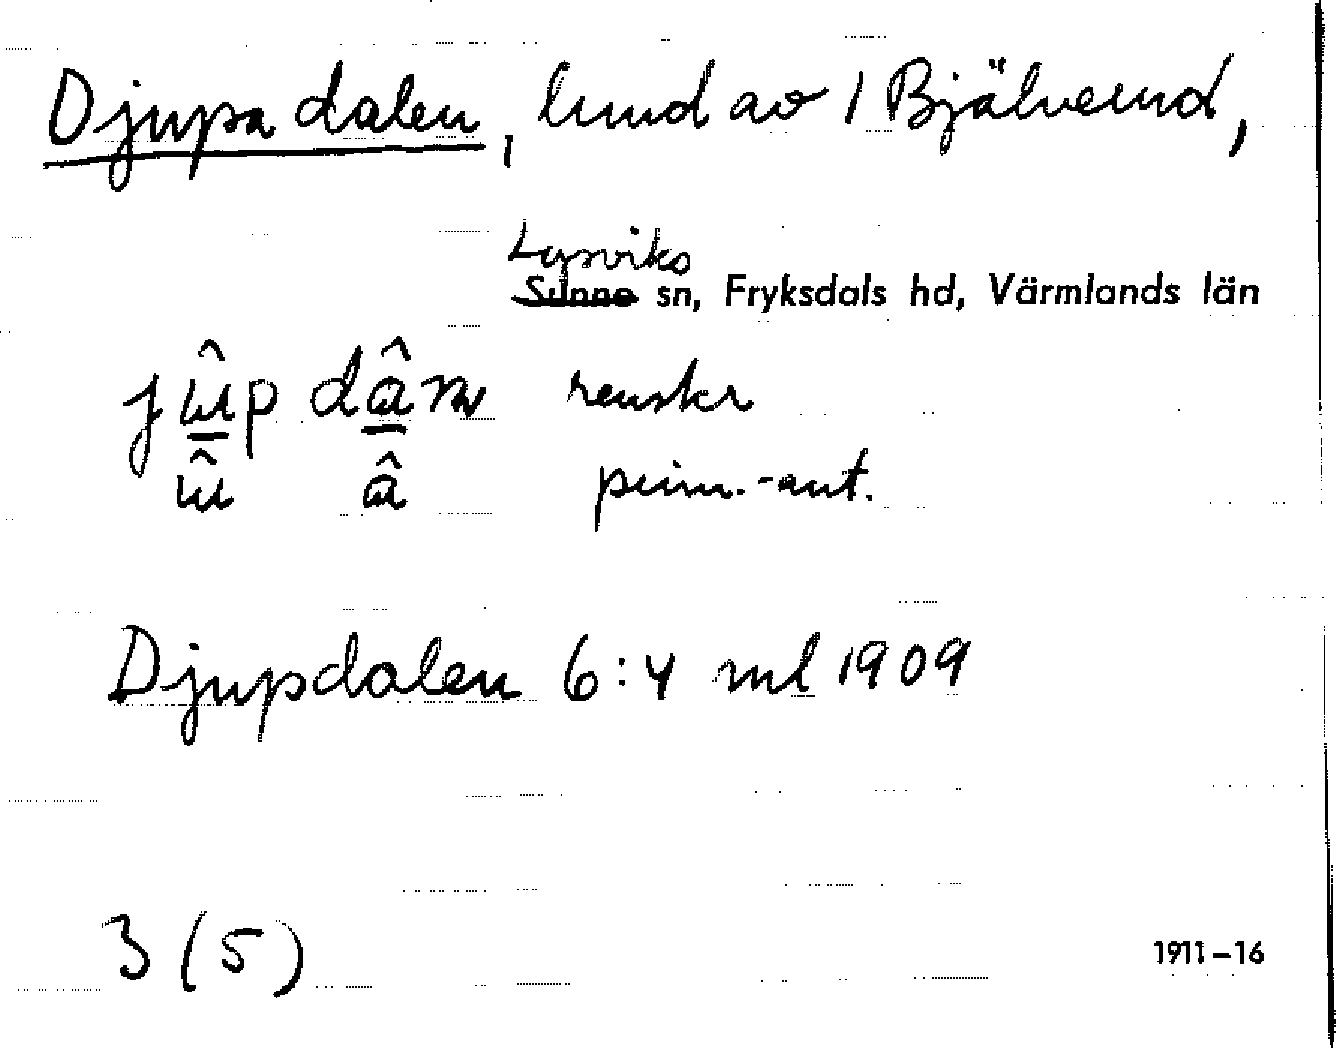 Djupa dalen, lund av 1 Bjälverud,
Lysviks
Sunne sn, Fryksdals hd, Värmlands län
renskr
prim.-ant.
Djupdalen 6:4 ml 1909
3 (5)
1911-16